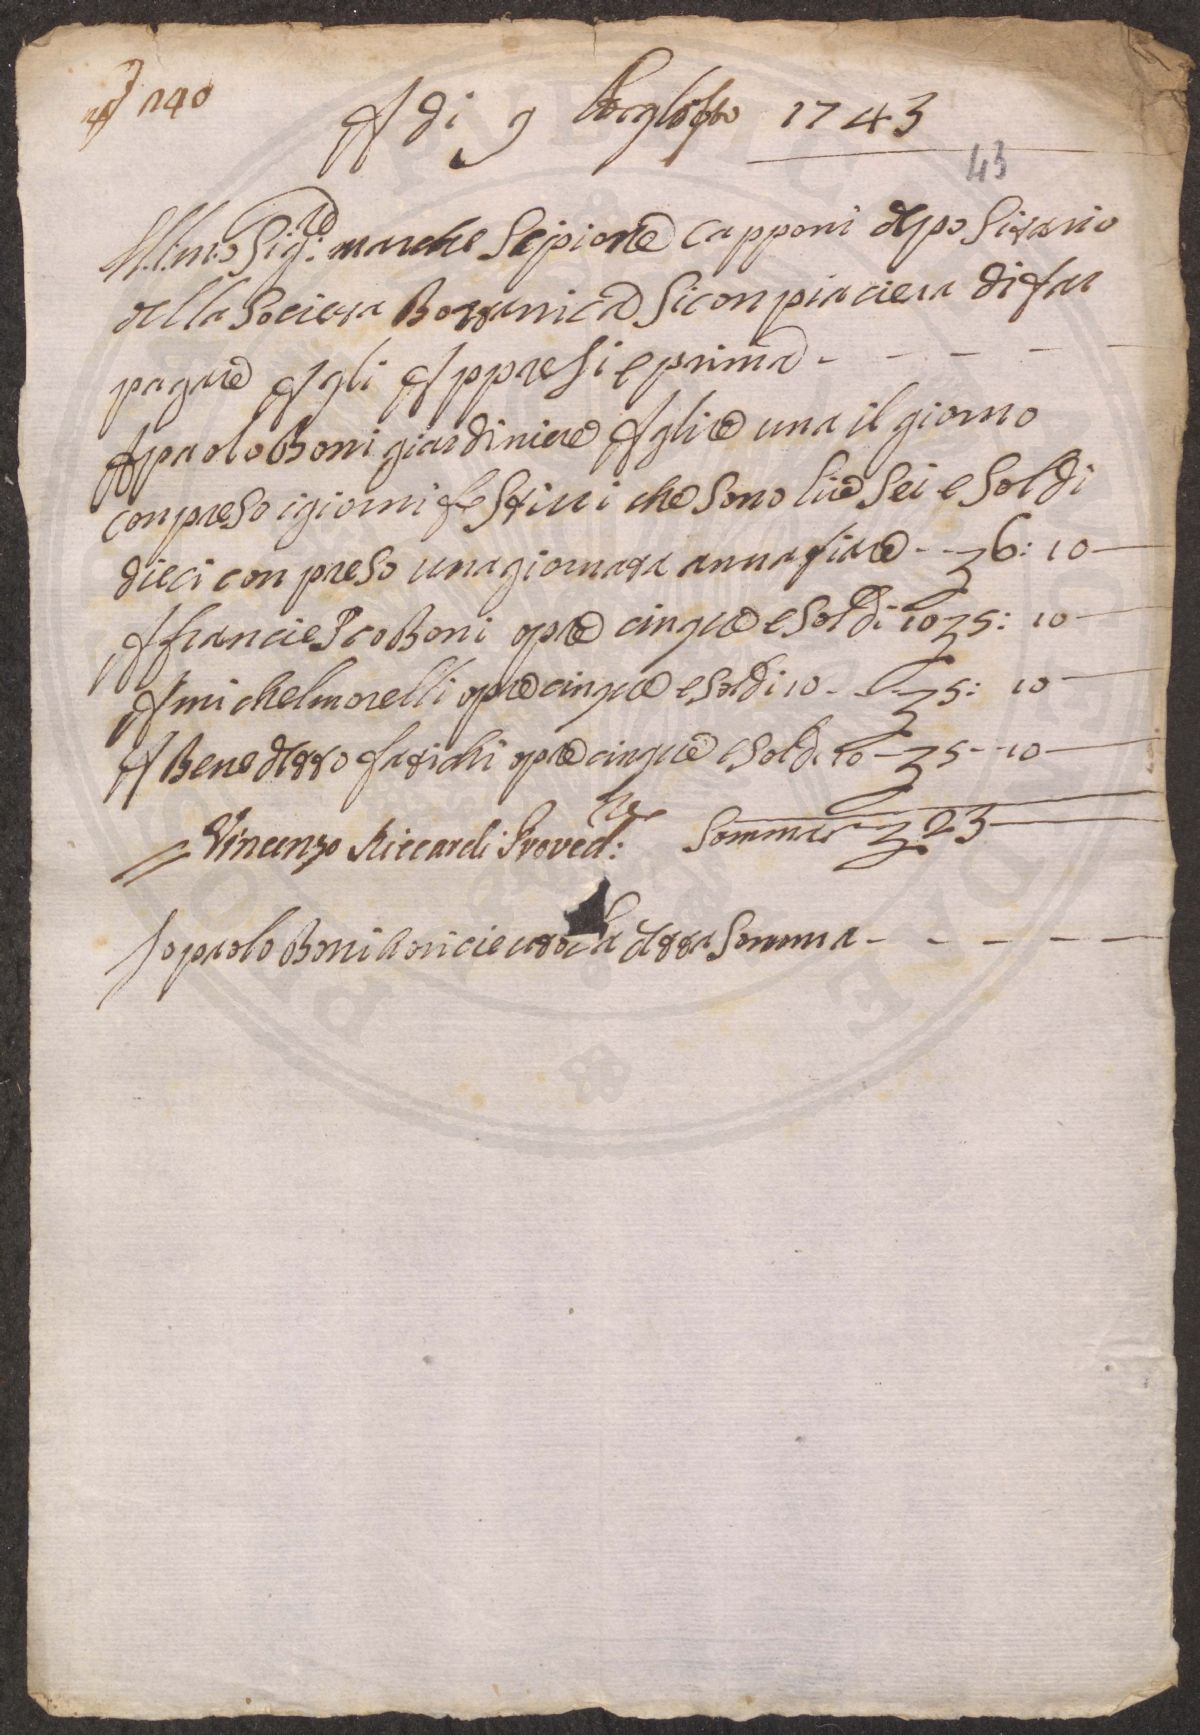 140
A di 9 1743
43
Ill:mo Sig:re marche Scipione capponi deposirario
della Sociera Bottanica Si conpiaciera di far
pagare A gli Appresi e prima - - - - -
A paolo Boni giardiniere A lire una il giorno
conpreso i giorni festivi che sono lire sei e Soldi
dieci conpreso una giornata annafiare - - 6: 10 -
A francieScoBoni opre cinque e Soldi 10 5: 10 -
A michelmorelli opre cinque e Soldi 10 - - 5: 10 -
A Benedetto farichi opre cinque e Sold 10 - 5 - 10 -
Vincenzo Riccardi Proved:re Somma 23 -
Io paolo Boni ho ricieuto la detta Somma - - - - -